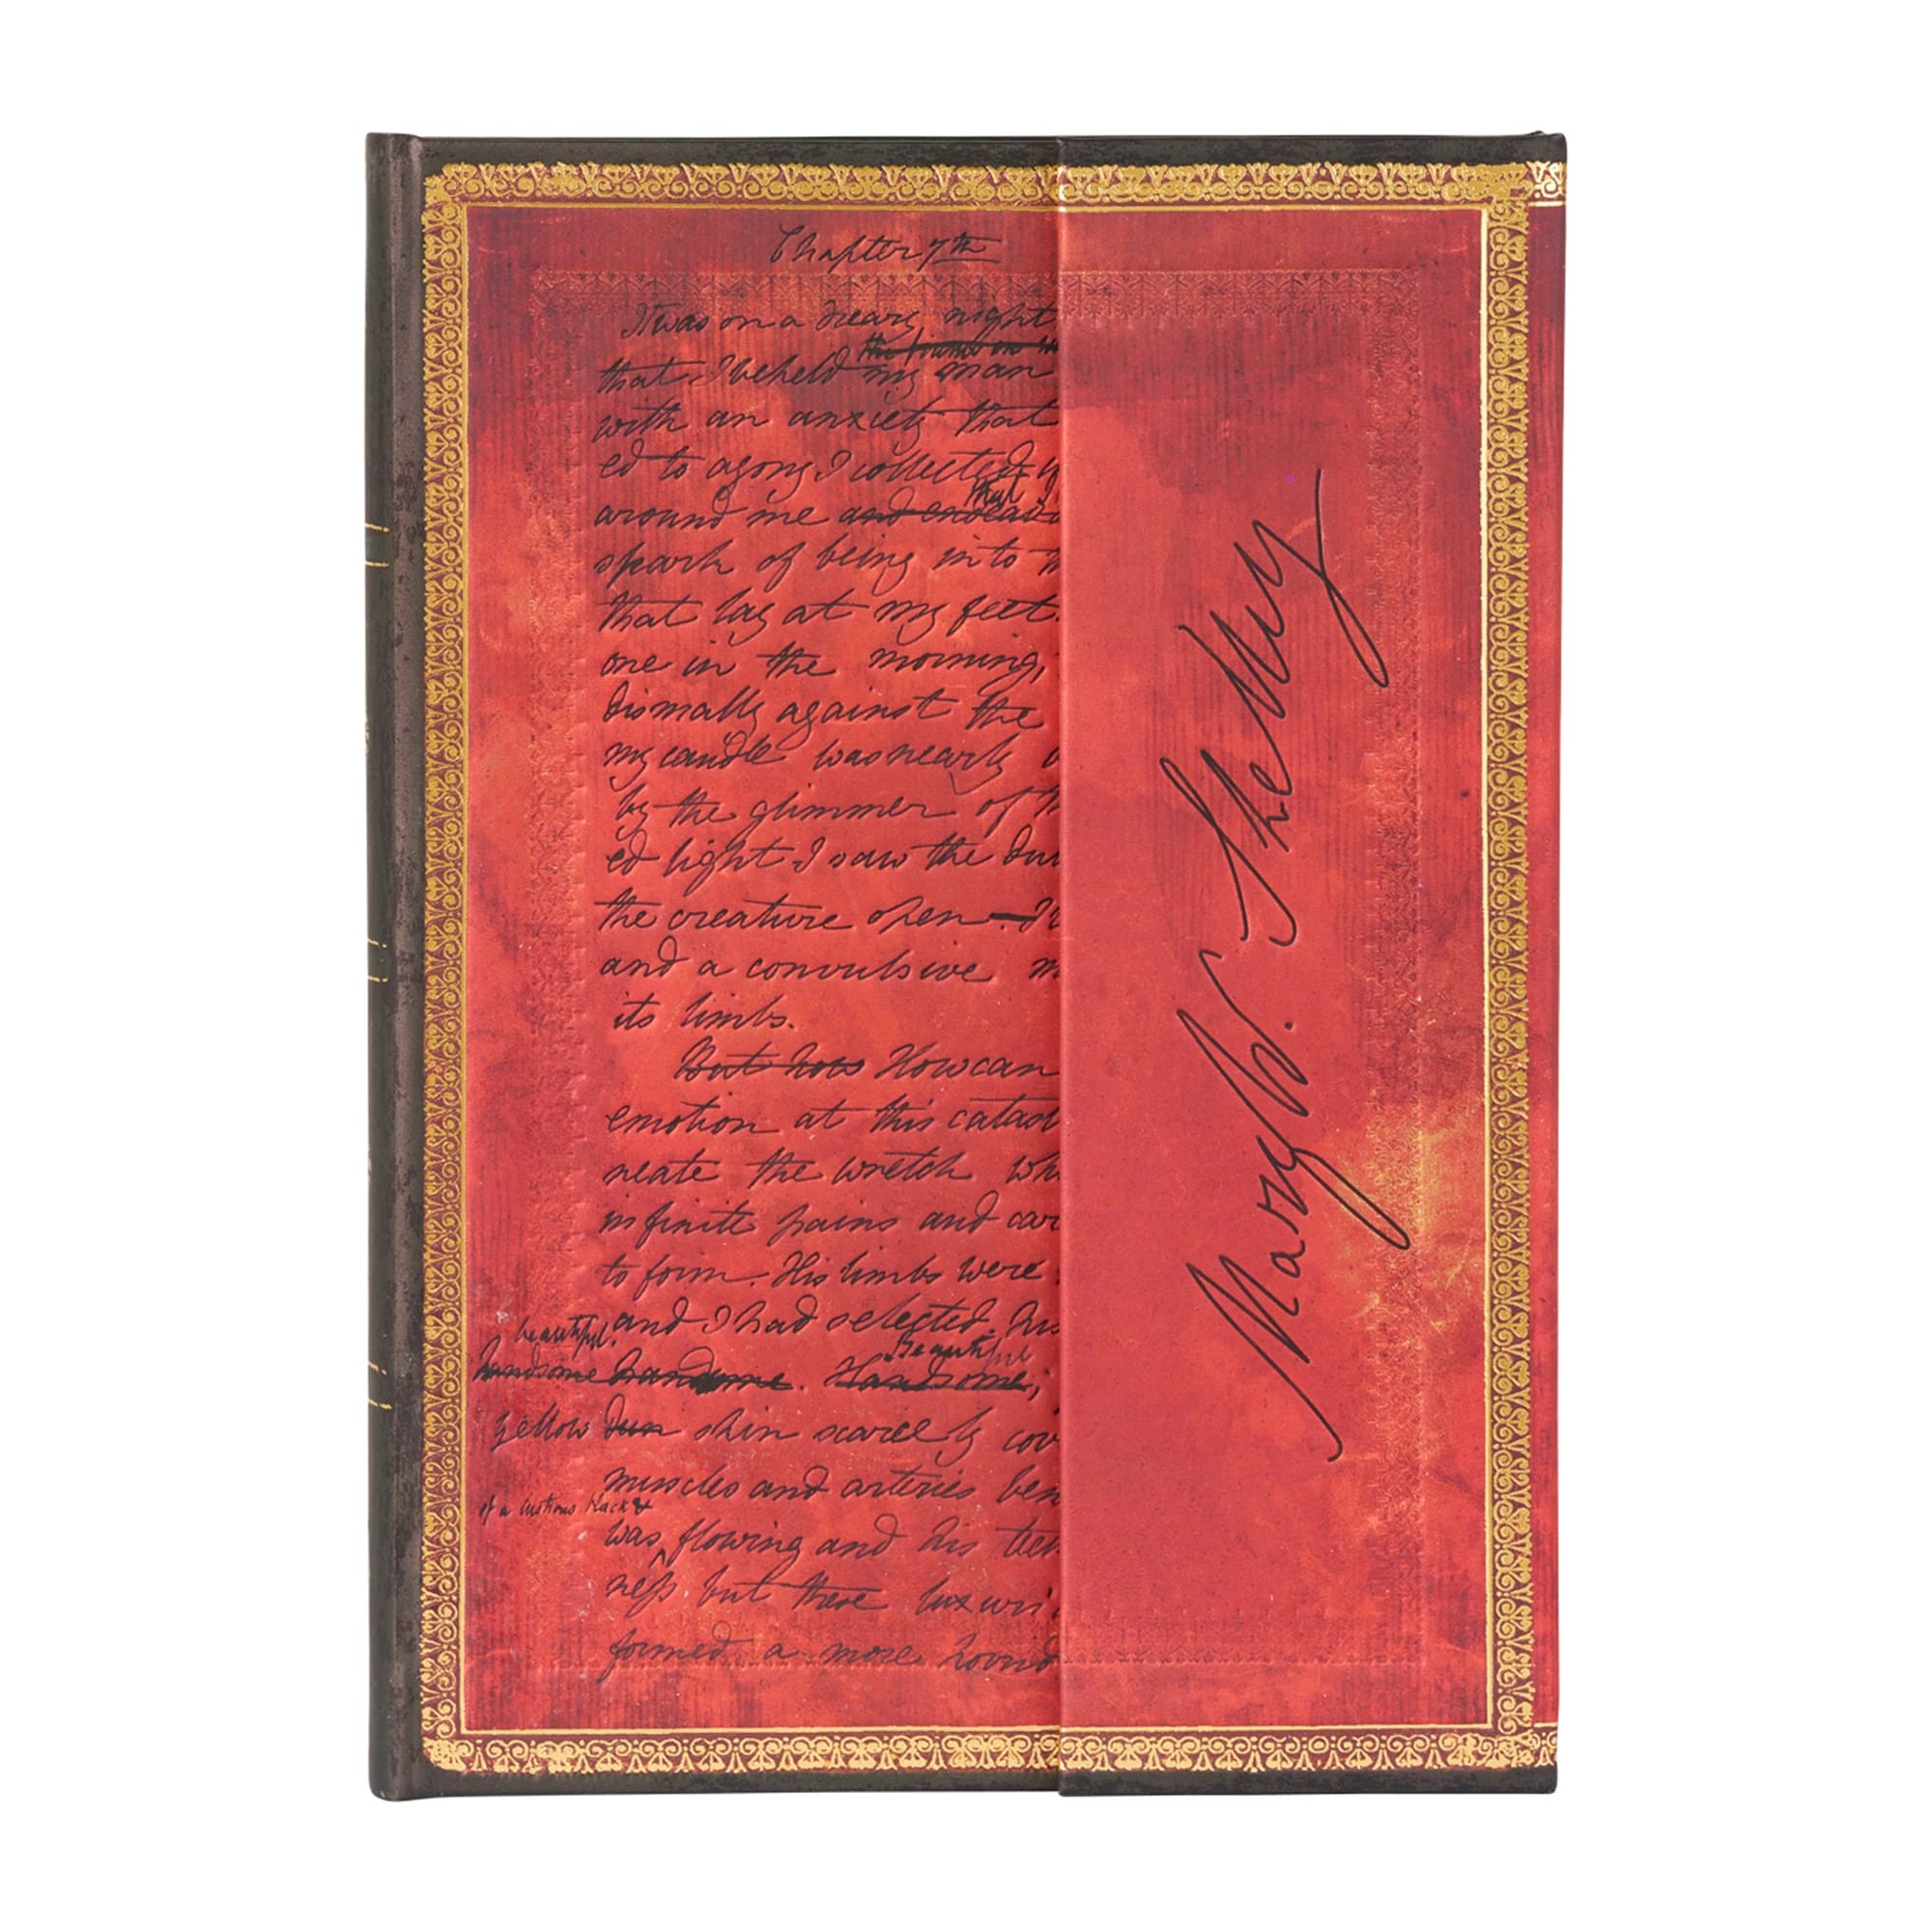 Chapter 7th
It was on a dreary night
that I beheld my man
with an anxiety that
ed to agony I collected
that
around me and endeavo
spark of being into
that lay at my feet.
one in the morning,
dismally against the
my candle was nearly
by the glimmer of
ed light I saw the dul
the creature open
and a convulsive m
its limbs.
But how How can
emotion at this catast
neate the wretch wh
infinite pains and car
to form. His limbs were
and I had selected his
beautiful. Beautiful
handsome handsome. Handsome,
yellow dun skin scarcely cov
muscles and arteries ben
of a lustrous black &
was flowing and his tee
ness but these luxuri
formed a more horrid
Mary W. Shelley